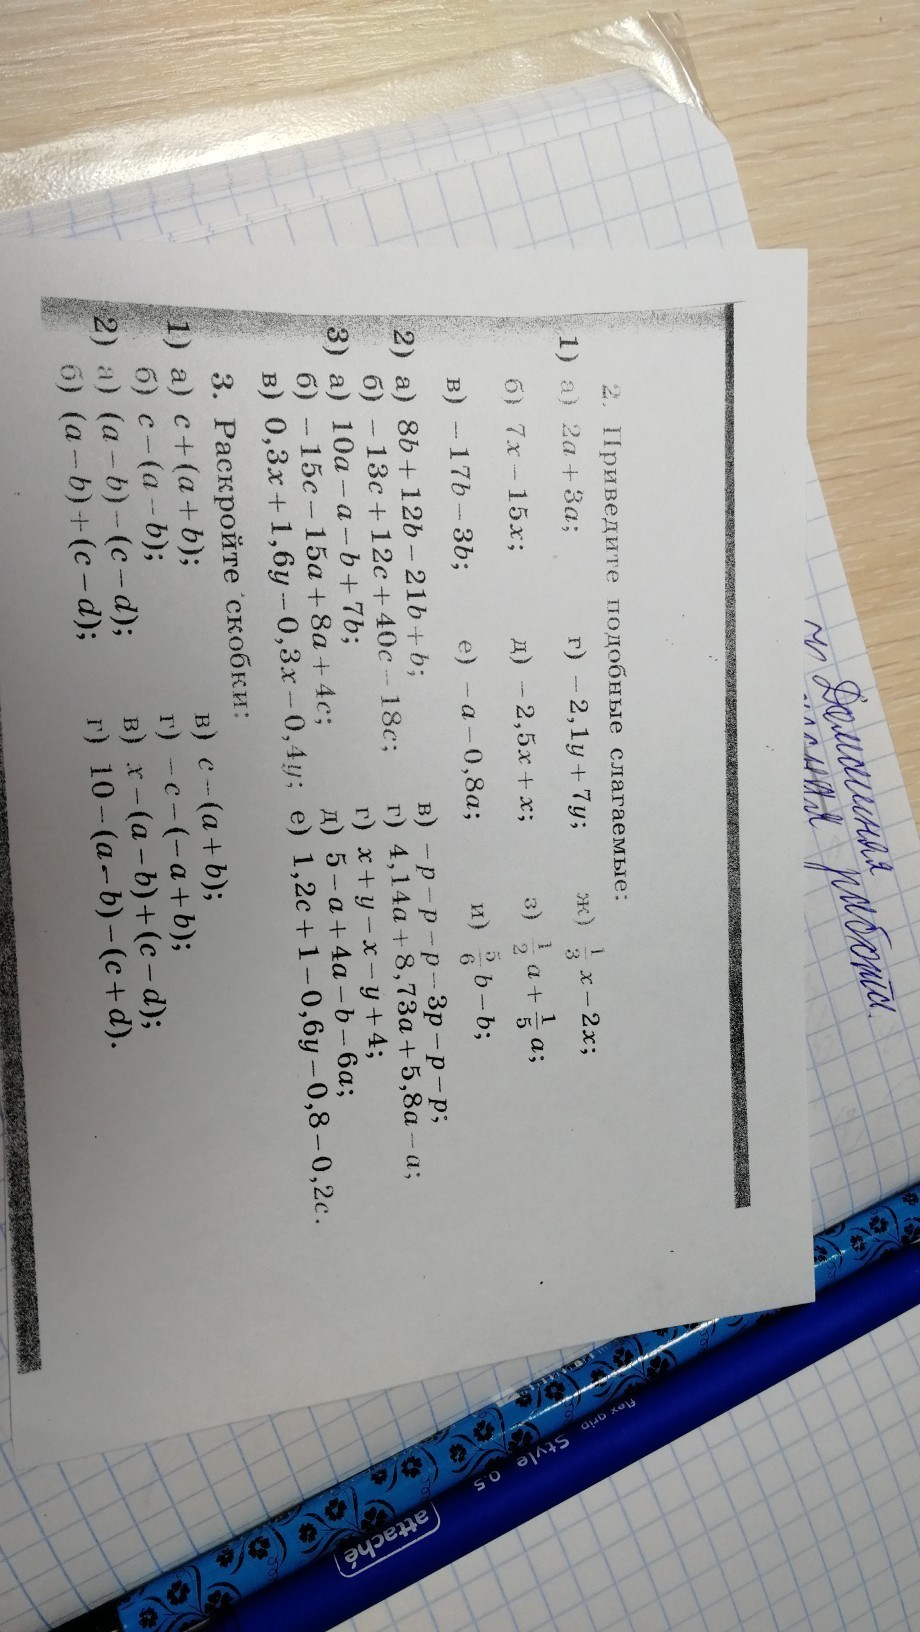 Домашняя работа.
2. Приведите подобные слагаемые:
1) а) 2a + 3a; г) −2,1y + 7y; ж) 1/3 x − 2x;
б) 7x − 15x; д) −2,5x + x; з) 1/2 a + 1/5 a;
в) −17b − 3b; е) −a − 0,8a; и) 5/6 b − b;
2) а) 8b + 12b − 21b + b; в) −p − p − p − 3p − p − p;
б) −13c + 12c + 40c − 18c; г) 4,14a + 8,73a + 5,8a − a;
3) а) 10a − a − b + 7b; г) x + y − x − y + 4;
б) −15c − 15a + 8a + 4c; д) 5 − a + 4a − b − 6a;
в) 0,3x + 1,6y − 0,3x − 0,4y; е) 1,2c + 1 − 0,6y − 0,8 − 0,2c.
3. Раскройте скобки:
1) а) c + (a + b); в) c − (a + b);
б) c − (a − b); г) −c − (−a + b);
2) а) (a − b) − (c − d); в) x − (a − b) + (c − d);
б) (a − b) + (c − d); г) 10 − (a − b) − (c + d).
flex grip Style 0.5
attaché